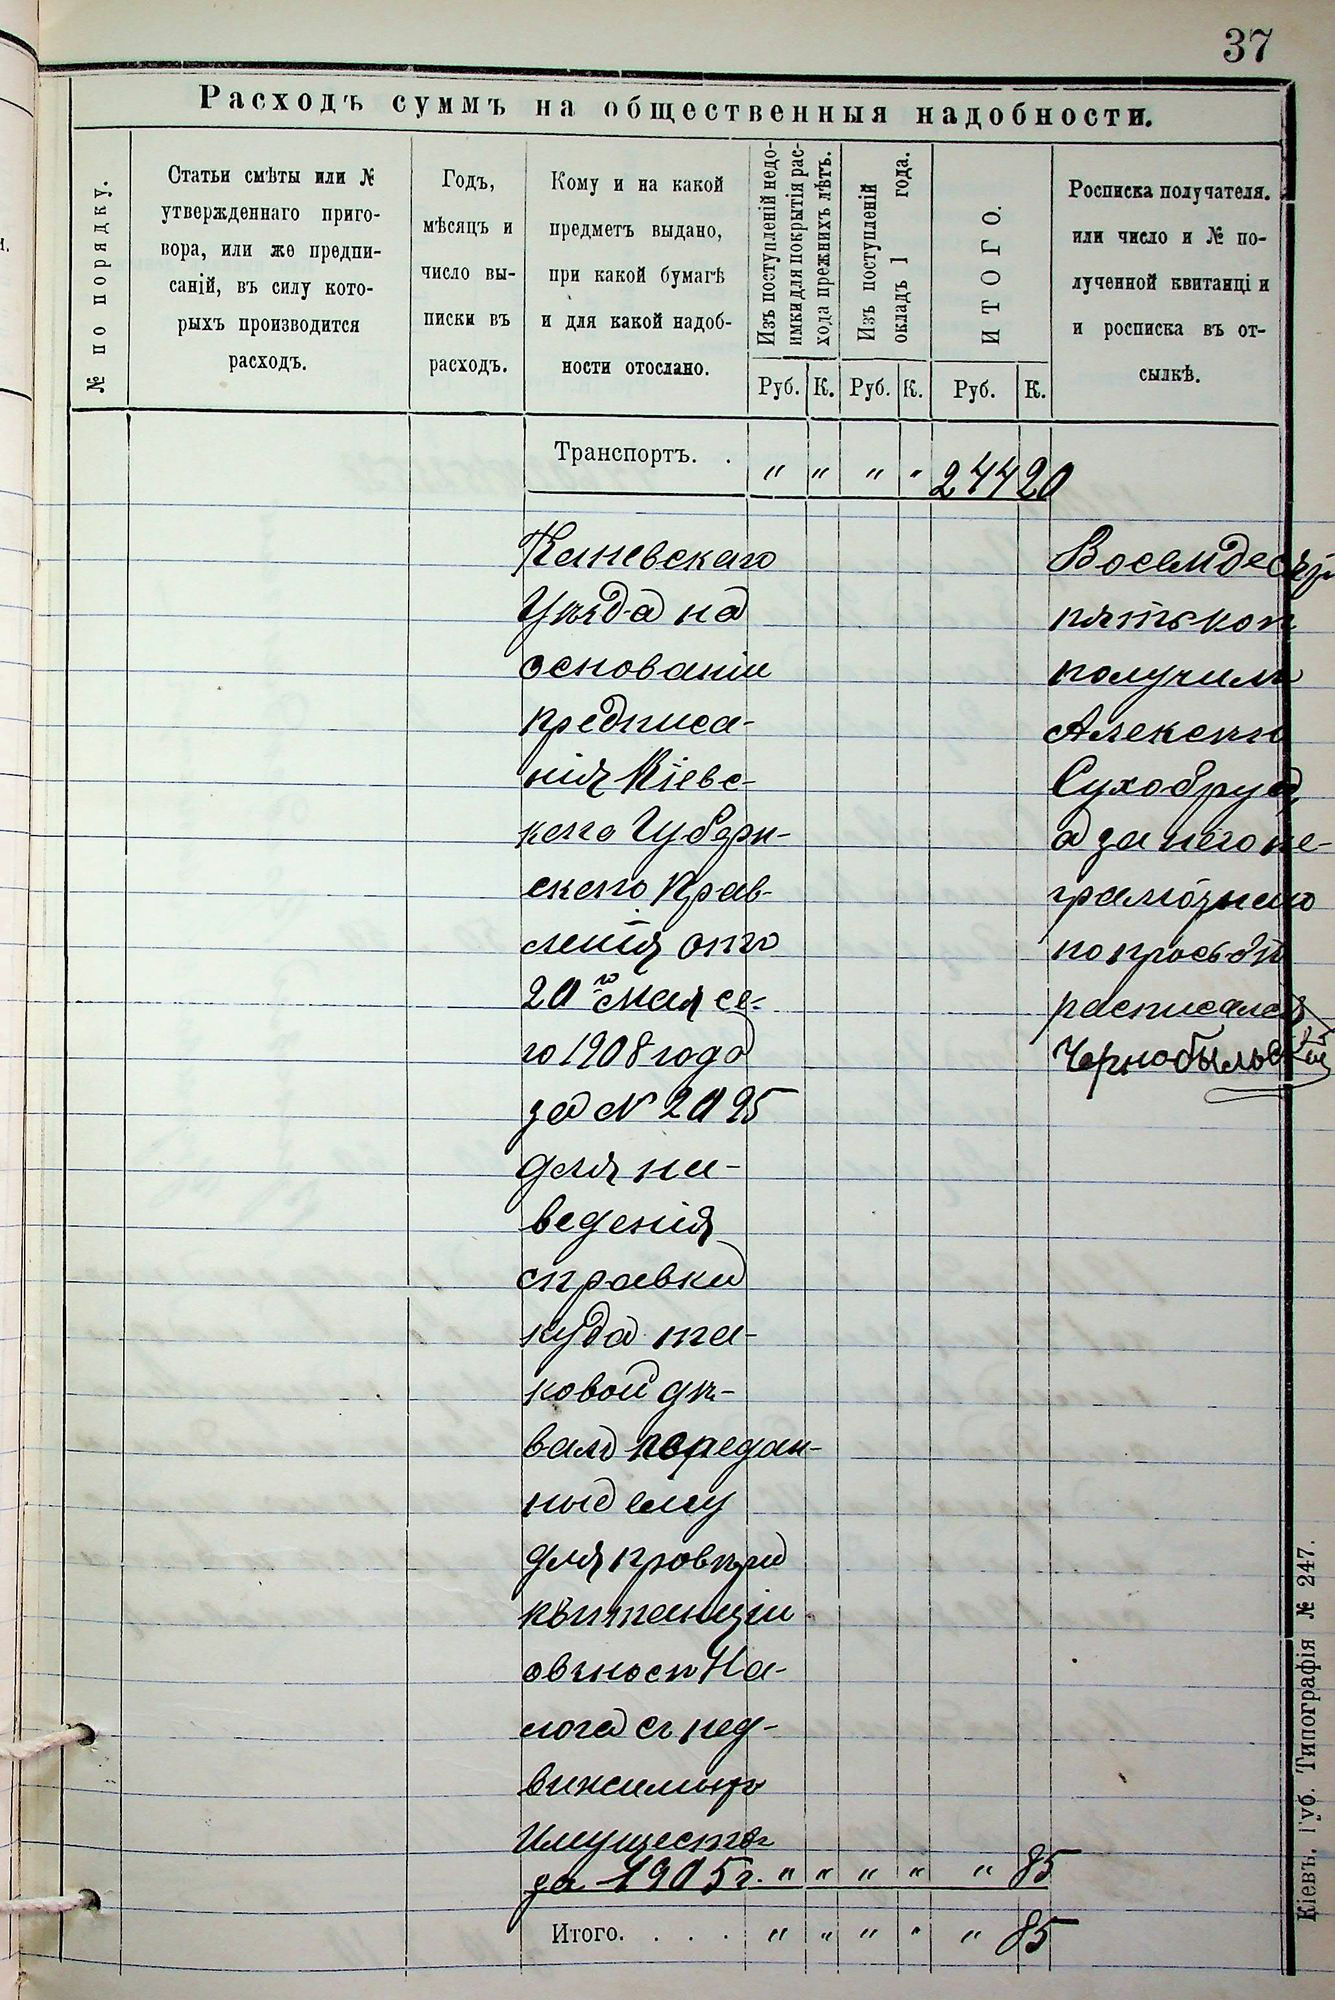 37
Расходъ суммъ на общественныя надобности.
№ по порядку.
Статьи смѣты или №
утвержденнаго приго-
вора, или же предпи-
саній, въ силу кото-
рыхъ производится
расходъ.
Годъ,
мѣсяцъ и
число вы-
писки въ
расходъ.
Кому и на какой
предметъ выдано,
при какой бумагѣ
и для какой надоб-
ности отослано.
Изъ поступленій недо-
имки для покрытія рас-
хода прежнихъ лѣтъ.
Изъ поступленій
окладъ 1 года.
ИТОГО.
Росписка получателя.
или число и № по-
лученной квитанціи
и росписка въ от-
сылкѣ.
Руб. К. Руб. К. Руб. К.
Транспортъ. . " " " " 244 20
Каневскаго
Уѣзда на
основаніи
предписа-
нія Кіевс-
кого Губерн-
ского Прав-
ленія отъ
20го мая се-
го 1908 года
за № 2095
для на-
веденія
справки
куда та-
ковой дѣ-
валъ передан-
ные ему
для провѣри
квитанціи
овзносѣ На-
лога съ нед-
вижимыхъ
Имуществъ
за 1905 г. " " " " " 85
Восемдесят
пять коп
получилъ
Алексѣй
Сухобрус,
а за него не-
грамотного
по просьбѣ
расписался
Чернобыльскій
Итого. . . . " " " " " 85
Кіевъ. Губ. Типографія № 247.